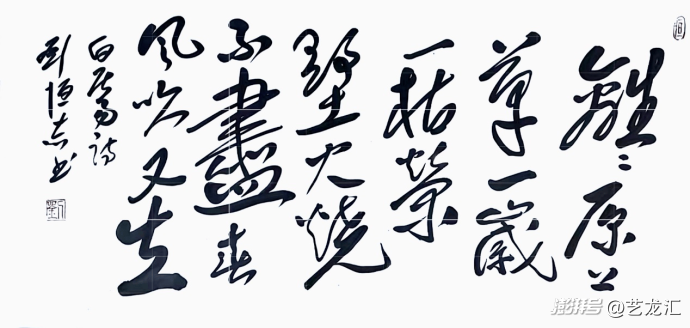 離〻原上
草一歲
一枯榮
野火燒
不盡春
風吹又生
白居易詩
劉恆志书
澎湃号 @艺龙汇